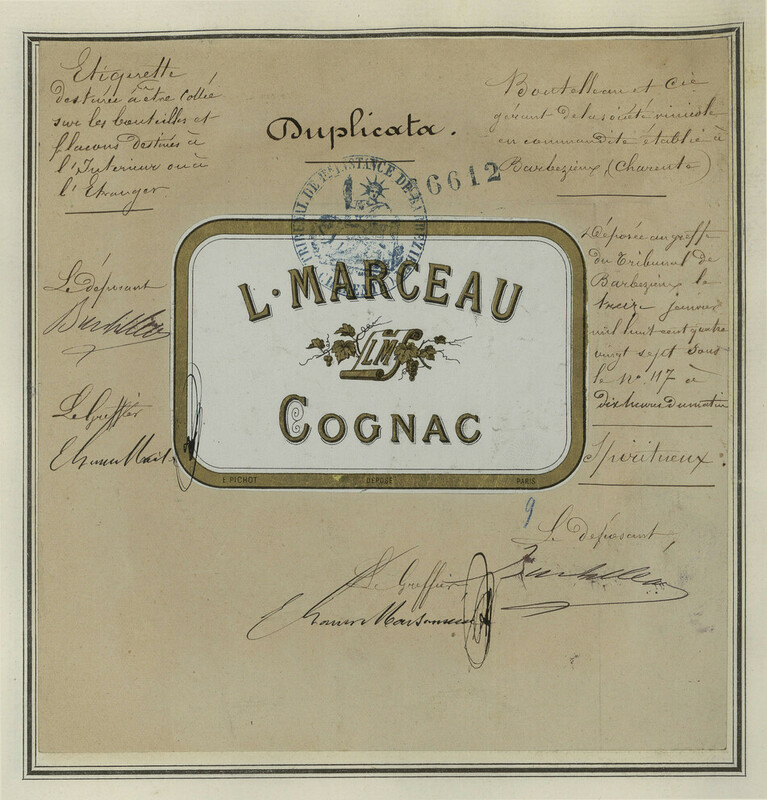 Etiquette
destinée à être collée
sur les bouteilles et
flacons destinés à
l'Interieur ou à
l'Etranger
Duplicata.
Boutelleau et Cie
gérant de la société vinicole
en commandite établie à
Barbezieux, (Charente)
6612
TRIBUNAL DE 1ère INSTANCE DE BARBEZIEUX
Déposée au greffe
du Tribunal de
Barbezieux le
treize janvier
mil huit cent quatre
vingt sept sous
le No. 117 à
dix heures du matin
Spiritueux
Le déposant
Boutelleau
Le Greffier
L. MARCEAU
LM
COGNAC
E. PICHOT
DÉPOSÉ
PARIS
9
Le déposant,
Boutelleau
Le Greffier